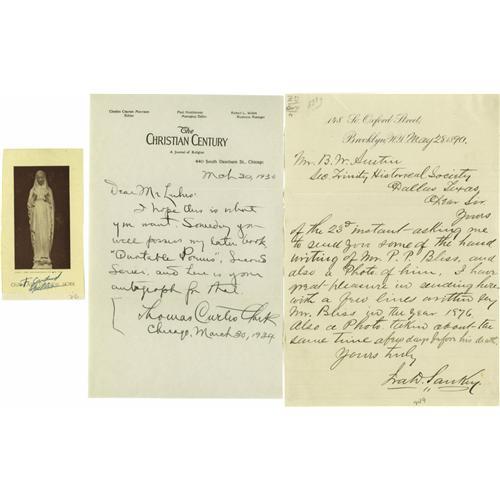 Clayton Morrison
Editor
Paul Hutchinson
Managing Editor
Business Manager
The
CHRISTIAN CENTURY
A Journal of Religion
440 South Dearborn St., Chicago
Mch 30, 1934
Dear Mr.
I hope this is what
you want. Someday you
will possess my later book
"Quotable Poems", Second
Series, and here is your
autograph for that.
Thomas Curtis Clark
Chicago, March 30, 1934.
148 So. Oxford Street,
Brooklyn, N.Y. May 28 1890,
Mr. B. W. Austin
Sec Trinity Historical Society
Dallas Texas,
Dear Sir
Yours
of the 23d instant asking me
to send you some of the hand
writing of Mr. P. P. Bliss, and
also a Photo of him, I have
great pleasure in sending here
with a few lines written by
Mr. Bliss in the year 1876,
Also a Photo taken about the
same time a few days before his death,
Yours truly
Ira D. Sankey